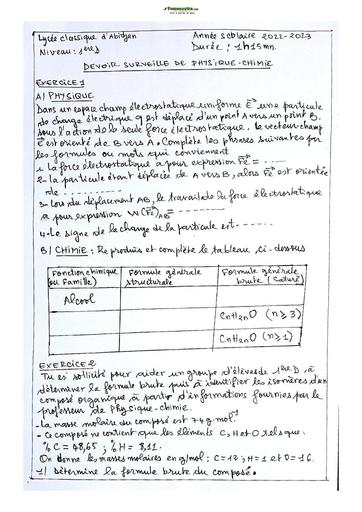 Fomesoutra.com
Lycée classique d'Abidjan Année scolaire 2022-2023
Niveau : 1ère D Durée : 1h15mn.
DEVOIR SURVEILLE DE PHYSIQUE-CHIMIE
EXERCICE 1
A/ PHYSIQUE
Dans un espace champ électrostatique uniforme E une particule
de charge électrique q est déplacé d'un point A vers un point B,
sous l'action de la seule force électrostatique. Le vecteur-champ
E est orienté de B vers A. Complète les phrases suivantes par
les formules ou mots qui conviennent
1. La force électrostatique a pour expression Fe = -----
2- la particule étant déplacée de A vers B, alors E est orientée
de ----------
3- Lors du déplacement AB, le travail de la force électrostatique
a pour expression W(Fe)AB = --------
4- Le signe de la charge de la particule est -----
B/ CHIMIE : Reproduis et complète le tableau ci-dessous
Fonction chimique Formule générale Formule générale
(ou Famille) structurale brute (saturé)
Alcool
CnH2nO (n≥3)
CnH2nO (n≥1)
EXERCICE 2
Tu es sollicité pour aider un groupe d'élèves de 1ère D, à
déterminer la formule brute puis à identifier les isomères d'un
composé organique à partir d'informations fournies par le
professeur de Physique-chimie.
- La masse molaire du composé est 74 g.mol-1
- Ce composé ne contient que les éléments C, H et O tels que :
% C = 48,65 ; % H = 8,11.
On donne les masses molaires en g/mol : C = 12 ; H = 1 et O = 16.
1/ Détermine la formule brute du composé.